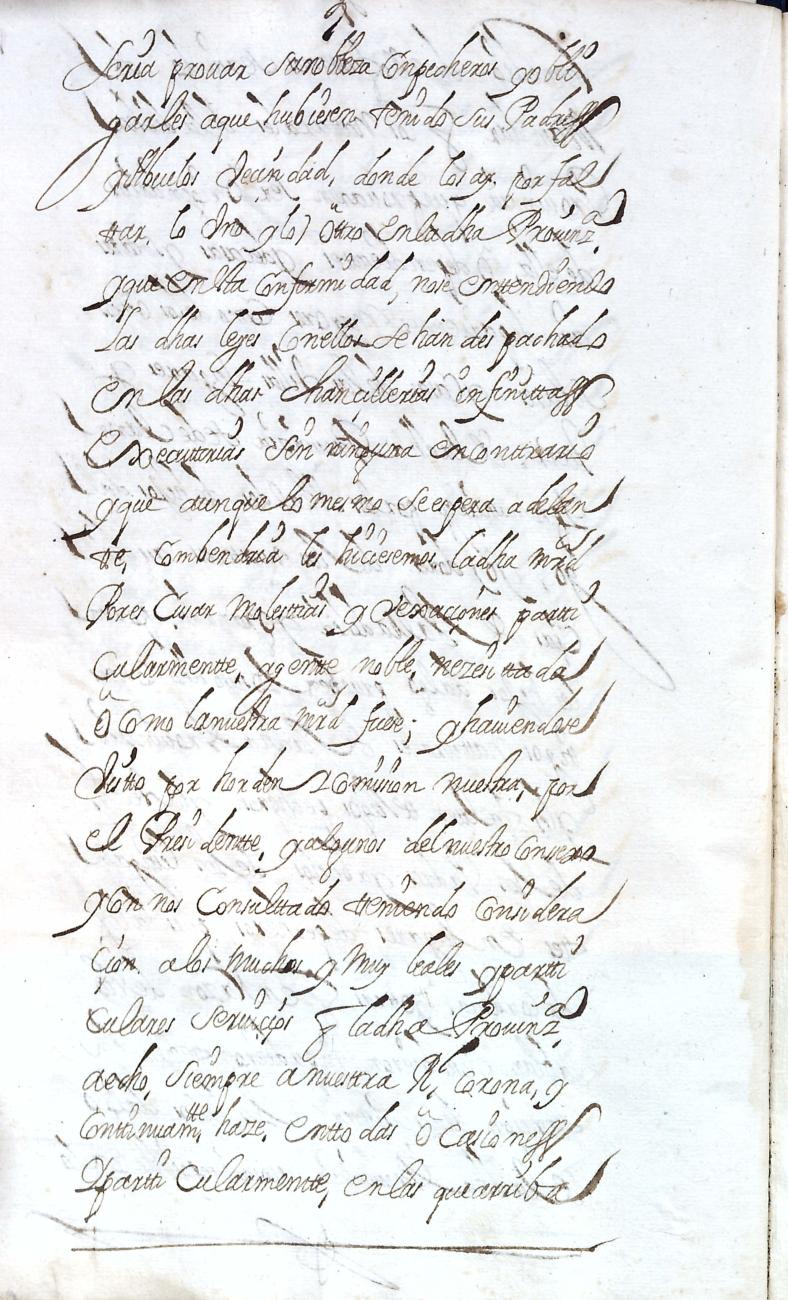 Seria provar su nobleza con pecheros y obli
garles a que hubiesen tenido sus Padress
y Abuelos vecindad, donde los ay por fal
ttar, lo Uno y lo ottro en la dha Provinza
y que en esta conformidad, no se enttendiendo
las dhas leyes, con ellos se han despachado
en las dhas chancillerias infinittass
Executorias sin ninguna en conttrario
y que aunque lo mesmo se espera adelan
tte, combendria les hiciesemos la dha mrd
Por escusar molesttias y vexaciones partti
cularmentte, a gentte noble, nezesittada
ô como la nuestra mrd fuese; y haviendose
Vistto por horden y comision nuestra, por
el Presidentte, y algunos del nuestro consexo
y con nos consulttado, tteniendo considera
cion a los muchos y muy leales y partti
culares servicios q la dha Provinza
a echo, siempre a nuestra Rl corona, y
conttinuamtte haze, en ttodas ocasioness
y partticularmentte, en las que arriba